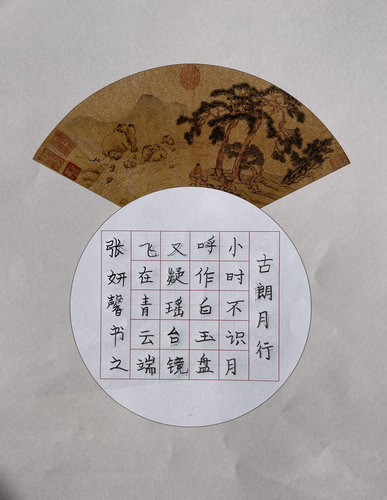 古朗月行
小时不识月
呼作白玉盘
又疑瑶台镜
飞在青云端
张妍馨书之